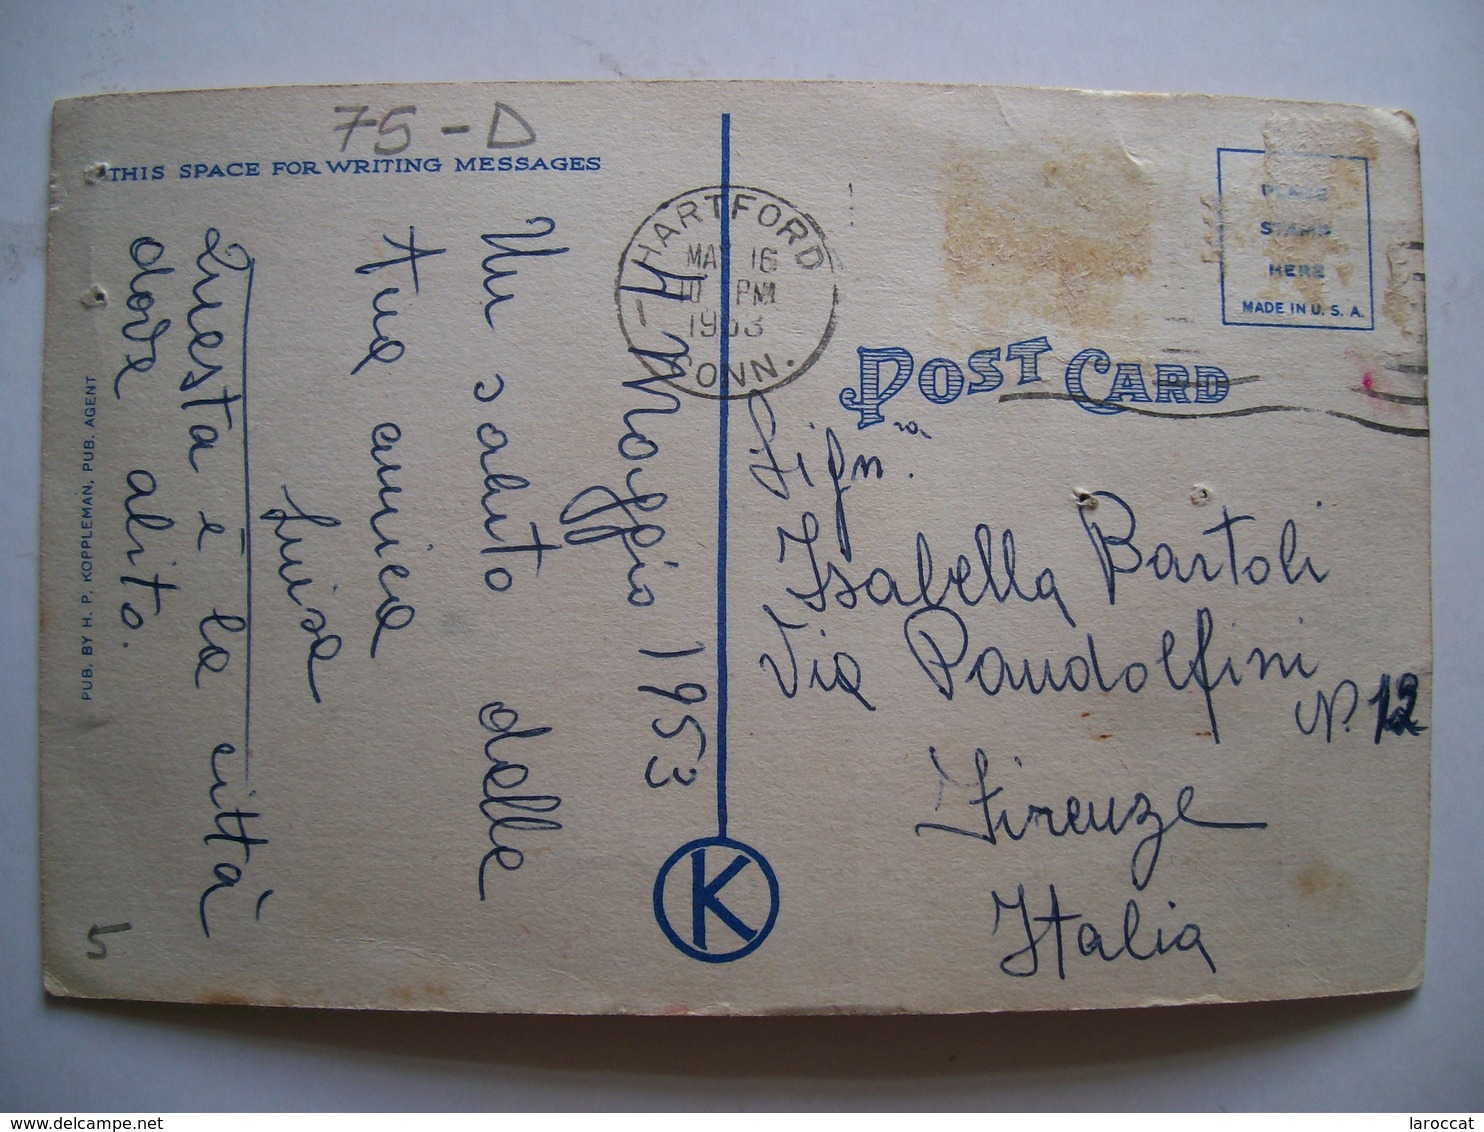 75-D
THIS SPACE FOR WRITING MESSAGES
Maggio 1953
Un saluto dalla
tua amica
Luisa
Questa è la città
dove abito.
PUB. BY H. P. KOPPLEMAN, PUB. AGENT
5
K
HARTFORD
MAY 16
PM
1953
CONN.
PLACE
STAMP
HERE
MADE IN U. S. A.
POST CARD
Sign.
Isabella Bartoli
Via Pandolfini
N. 12
Firenze
Italia
delcampe.net
laroccat